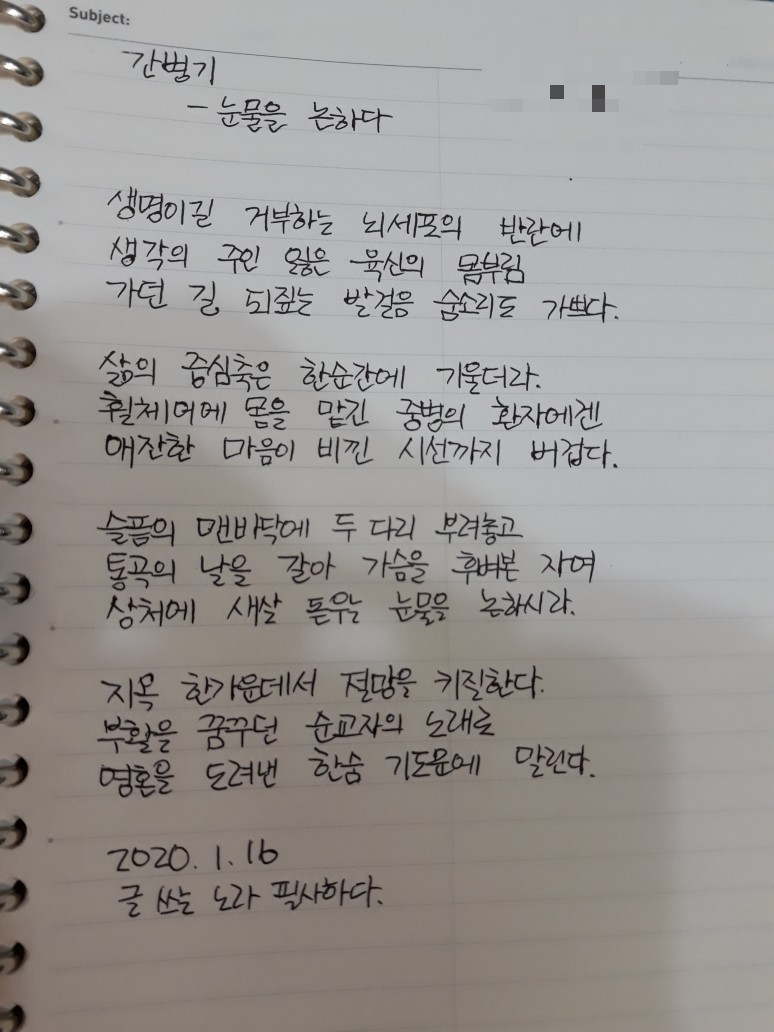 Subject:
간병기
- 눈물을 논하다
생명이길 거부하는 뇌세포의 반란에
생각의 주인 잃은 육신의 몸부림
가던 길 되짚는 발걸음 숨소리도 가쁘다.
삶의 중심축은 한순간에 기울더라.
휠체어에 몸을 맡긴 중병의 환자에겐
애잔한 마음이 비낀 시선까지 버겁다.
슬픔의 맨바닥에 두 다리 부려놓고
통곡의 날을 갈아 가슴을 후벼본 자여
상처에 새살 돋우는 눈물을 논하시라.
지옥 한가운데서 절망을 키질한다.
부활을 꿈꾸던 순교자의 노래로
영혼을 도려낸 한숨 기도문에 말린다.
2020. 1. 16
글 쓰는 노라 필사하다.